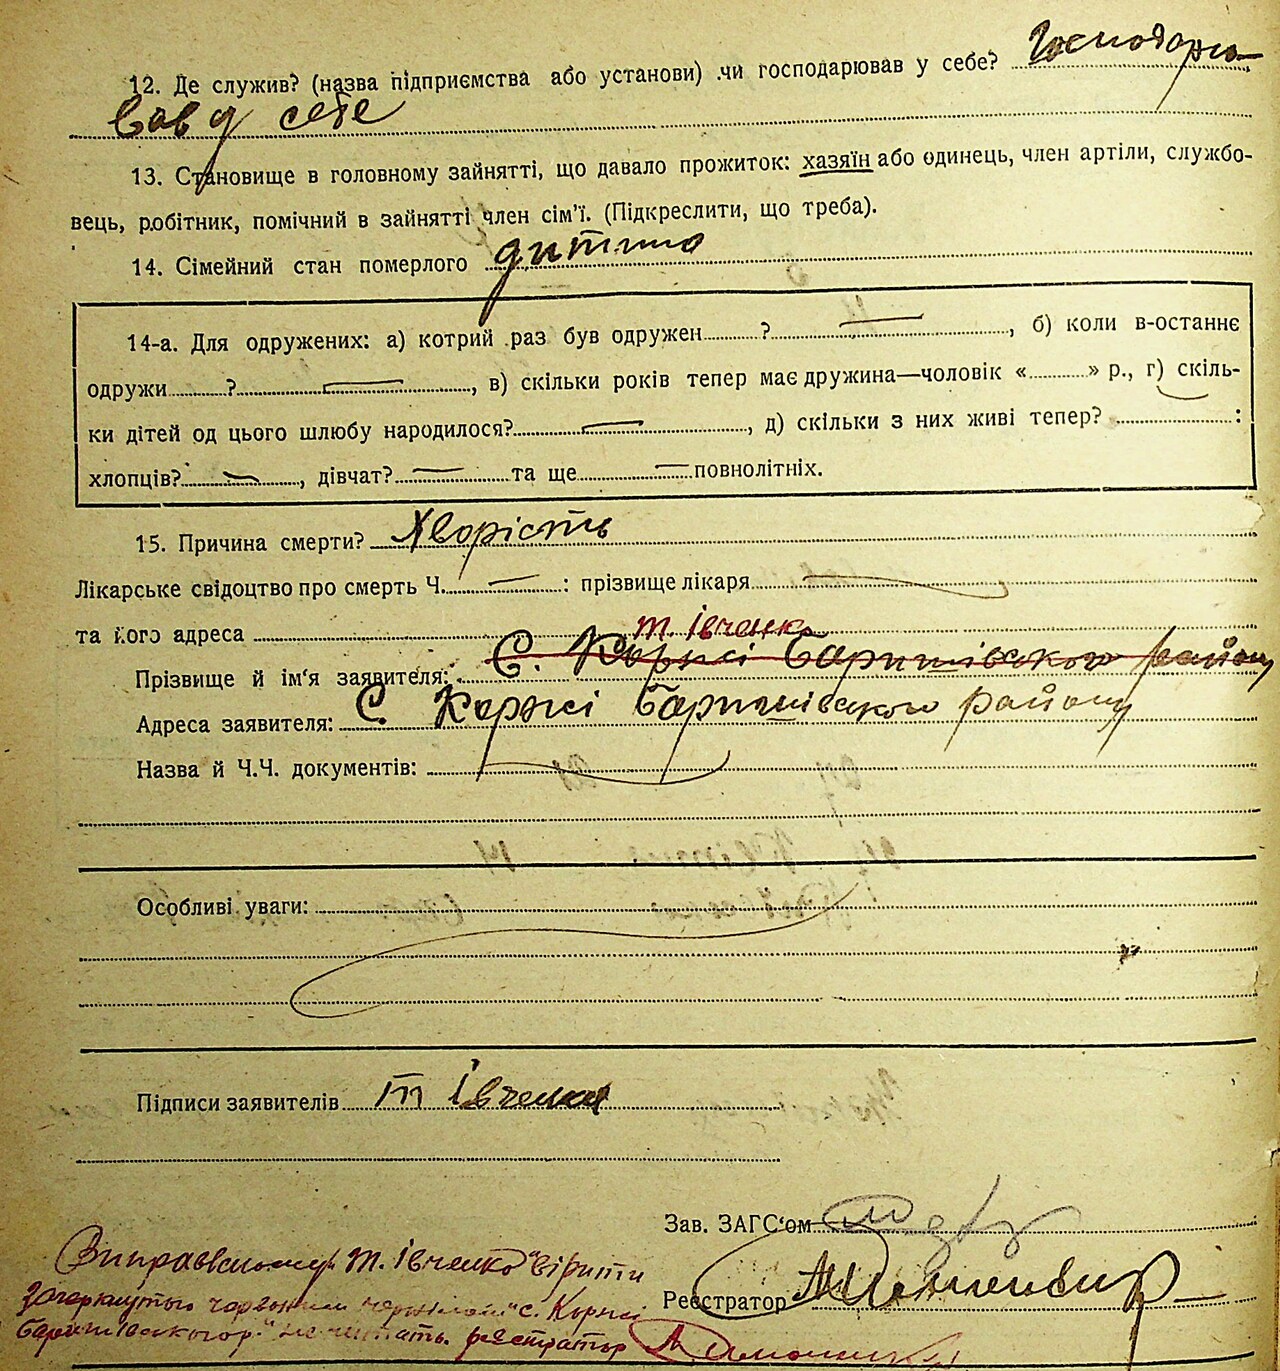 12. Де служив? (назва підприємства або установи) чи господарював у себе? Господарю-
вав у себе
13. Становище в головному зайнятті, що давало прожиток: хазяїн або одинець, член артіли, службо-
вець, робітник, помічний в зайнятті член сім'ї. (Підкреслити, що треба).
14. Сімейний стан померлого дитина
14-а. Для одружених: а) котрий раз був одружен ? —, б) коли в-останнє
одружи ? —, в) скільки років тепер має дружина—чоловік « » р., г) скіль-
ки дітей од цього шлюбу народилося? —, д) скільки з них живі тепер? :
хлопців? —, дівчат? — та ще — повнолітніх.
15. Причина смерти? Хворість
Лікарське свідоцтво про смерть Ч. — : прізвище лікаря —
та його адреса
т. Івченко
Прізвище й ім'я заявителя: С. Коржі Баришівського району
Адреса заявителя: С. Коржі Баришівського району
Назва й Ч.Ч. документів:
Особливі уваги:
Підписи заявителів Т Івченко
Зав. ЗАГС'ом
Виправленому "т. Івченко" вірити
Реєстратор
закреслутого червоним чернілом "с. Коржі
Баришівського р." не читать. реєстратор